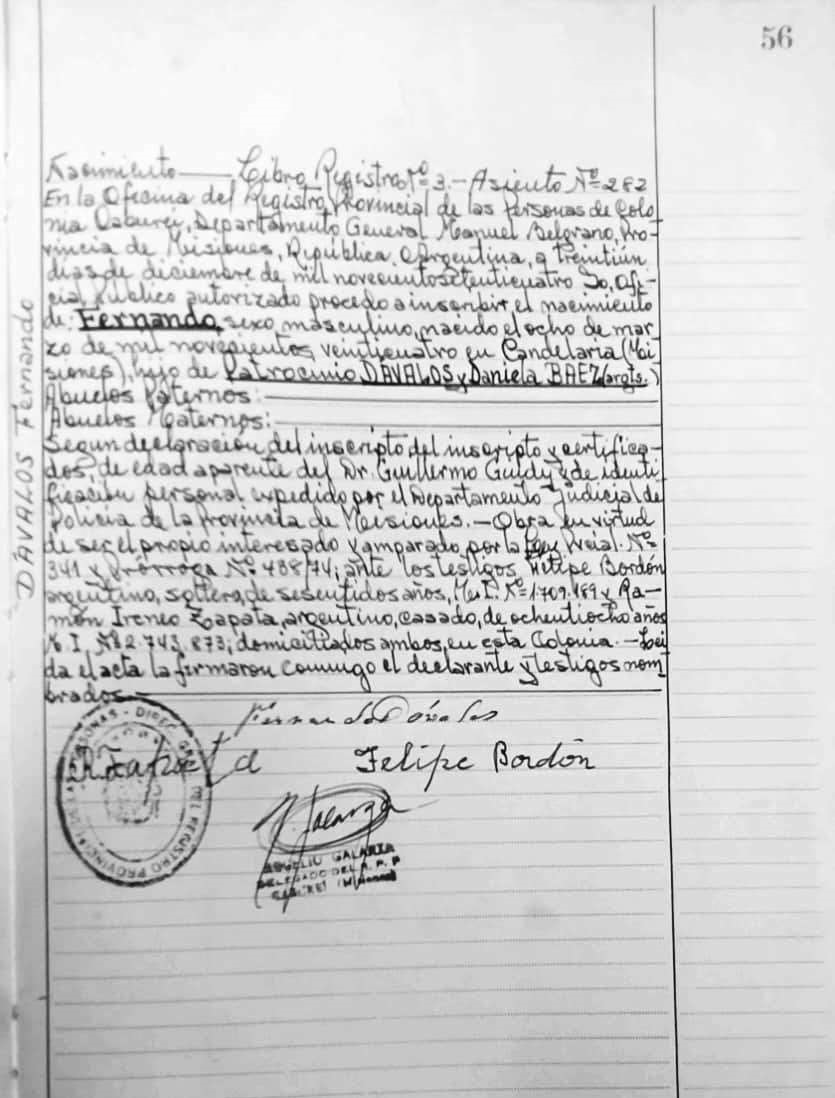 56
Nacimiento Libro Registro Nº=3.- Asiento Nº=282
En la Oficina del Registro Provincial de las Personas de Colo
nia Caburei, Departamento General Manuel Belgrano, Pro-
vincia de Misiones, República Argentina, a treintiún
dias de diciembre de mil novecientos setenticuatro Yo, Ofi-
cial Público autorizado procedo a inscribir el nacimiento
de: Fernando, sexo masculino, nacido el ocho de mar
zo de mil novecientos veinticuatro en Candelaria (Mi
siones), hijo de Patrocinio DÁVALOS y Daniela BAEZ (argts.)
Abuelos Paternos:
Abuelos Maternos:
Segun declaración del inscripto del inscripto y certifica-
dos, de edad aparente del Dr. Guillermo y de identi
ficación personal expedido por el Departamento Judicial de
Policia de la Provincia de Misiones.- Obra en virtud
de ser el propio interesado y amparado por la Ley Prcial. Nº=
341 y Prórroga Nº 438/74; ante los testigos Felipe Bordón
argentino, soltero, de sesentidos años, M.I. Nº=1.709.189 y Ra-
món Ireneo Zapata, argentino, casado, de ochentiocho años
M. I. Nº 2.743.873; domiciliados ambos, en esta Colonia.- Lei
da el acta la firmaron conmigo el declarante y testigos nom
brados.-
DÁVALOS Fernando
Fernando Dávalos
R. I. Zapata Felipe Bordón
R. Galarza
ROGELIO GALARZA
DELEGADO DEL R. P. P
CABUREI (Misiones)
DIREC. GRAL. DEL REGISTRO PROVINCIAL DE LAS PERSONAS